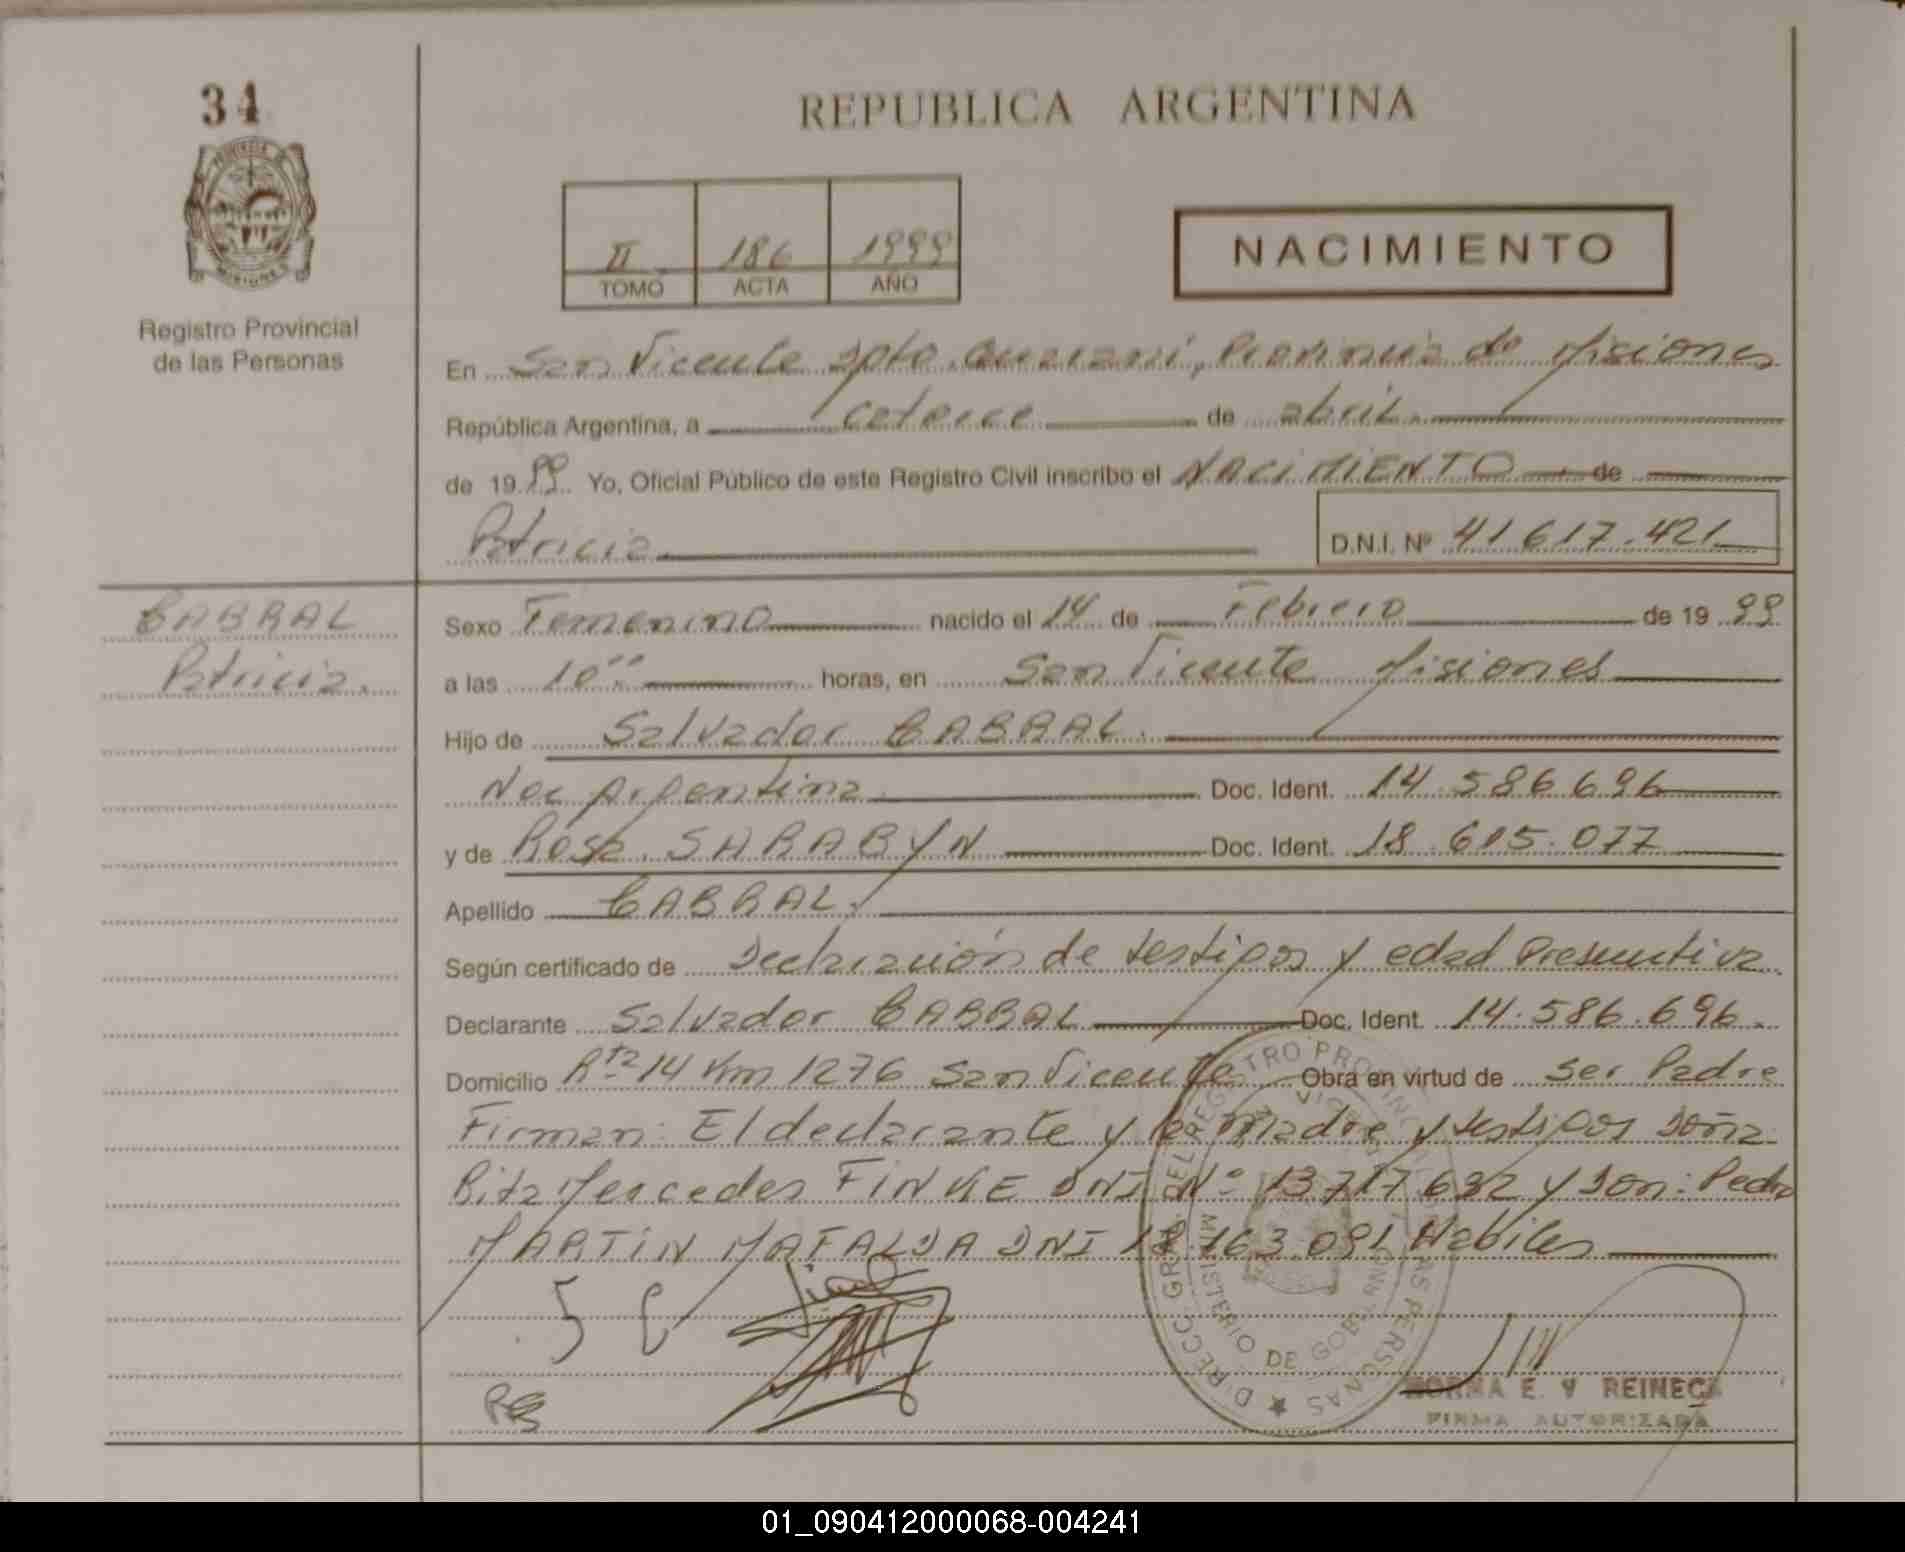 34
REPUBLICA ARGENTINA
II 186 1999
TOMO ACTA AÑO
NACIMIENTO
Registro Provincial
de las Personas
En San Vicente Dpto. Guaraní, Provincia de Misiones
República Argentina, a catorce de abril
de 1999 Yo, Oficial Público de este Registro Civil inscribo el NACIMIENTO de
Patricia D.N.I. Nº 41617.421
CABRAL
Patricia.
Sexo Femenino nacido el 14 de Febrero de 1999
a las 10 horas, en San Vicente Misiones
Hijo de Salvador CABRAL.
Nac Argentina Doc. Ident. 14.586.696
y de Rosa SARABYN Doc. Ident. 18.615.077
Apellido CABRAL.
Según certificado de Declaración de testigos y edad Presuntiva.
Declarante Salvador CABRAL Doc. Ident. 14.586.696.
Domicilio Rta 14 Km 1276 San Vicente Obra en virtud de ser Padre
Firman: El declarante y la madre y testigos Doña
Rita Mercedes FINKE DNI Nº 13.717.632 y Don: Pedro
MARTIN MAFALDA DNI 163.091 Habiles
DIRECC. GRAL. DEL REGISTRO PROVINCIAL DE LAS PERSONAS
MINISTERIO DE GOBIERNO
NORMA E. V REINECA
FIRMA AUTORIZADA
01_090412000068-004241